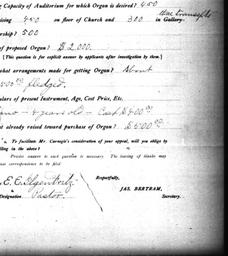 g Capacity of Auditorium for which Organ is desired? 450
rising 450 on floor of Church and 300 in Gallery.
ership? 500
of proposed Organ? $2,000.
[This question is for explicit answer by applicants after investigation by them.]
what arrangements made for getting Organ? About
pledged.
ulars of present Instrument, Age, Cost Price, Etc.
ano - 4 years old - Cost $400.00
nt already raised toward purchase of Organ? $500.00
. To facilitate Mr. Carnegie's consideration of your appeal, will you oblige by
lling in the above?
Precise answer to each question is necessary. The issuing of blanks may
Respectfully,
E. E.
JAS. BERTRAM,
Designation Pastor.
Secretary.